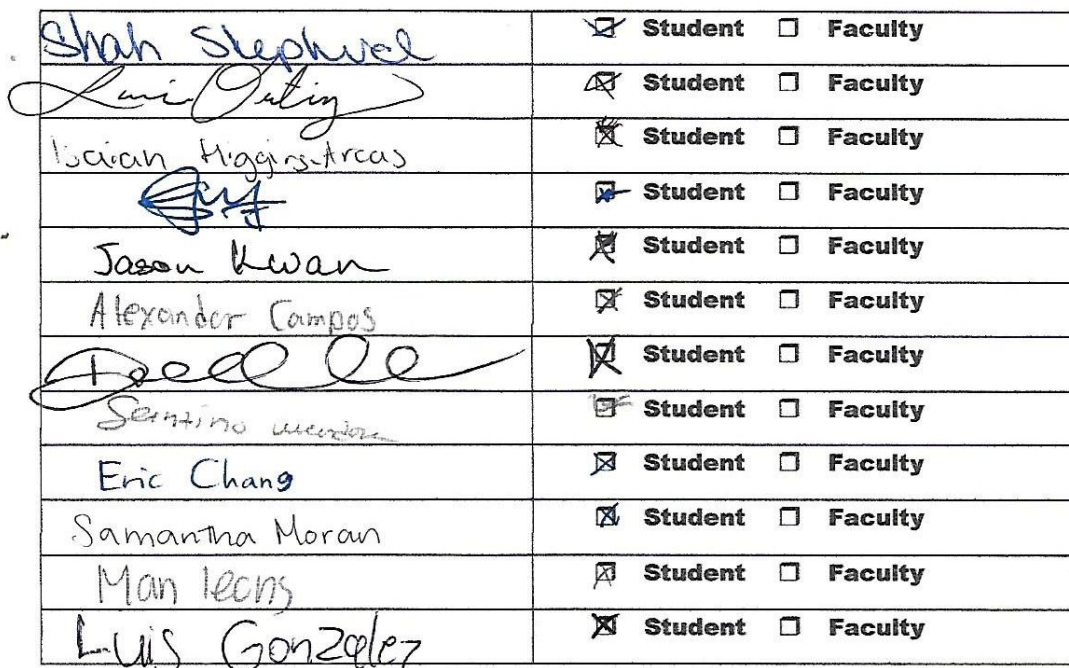 Shah ☑ Student ☐ Faculty
Luis Ortiz ☒ Student ☐ Faculty
Isaiah Higgins-Arcas ☒ Student ☐ Faculty
☒ Student ☐ Faculty
Jason Kwan ☒ Student ☐ Faculty
Alexander Campos ☒ Student ☐ Faculty
☒ Student ☐ Faculty
☒ Student ☐ Faculty
Eric Chang ☒ Student ☐ Faculty
Samantha Moran ☒ Student ☐ Faculty
Man leong ☒ Student ☐ Faculty
Luis Gonzalez ☒ Student ☐ Faculty